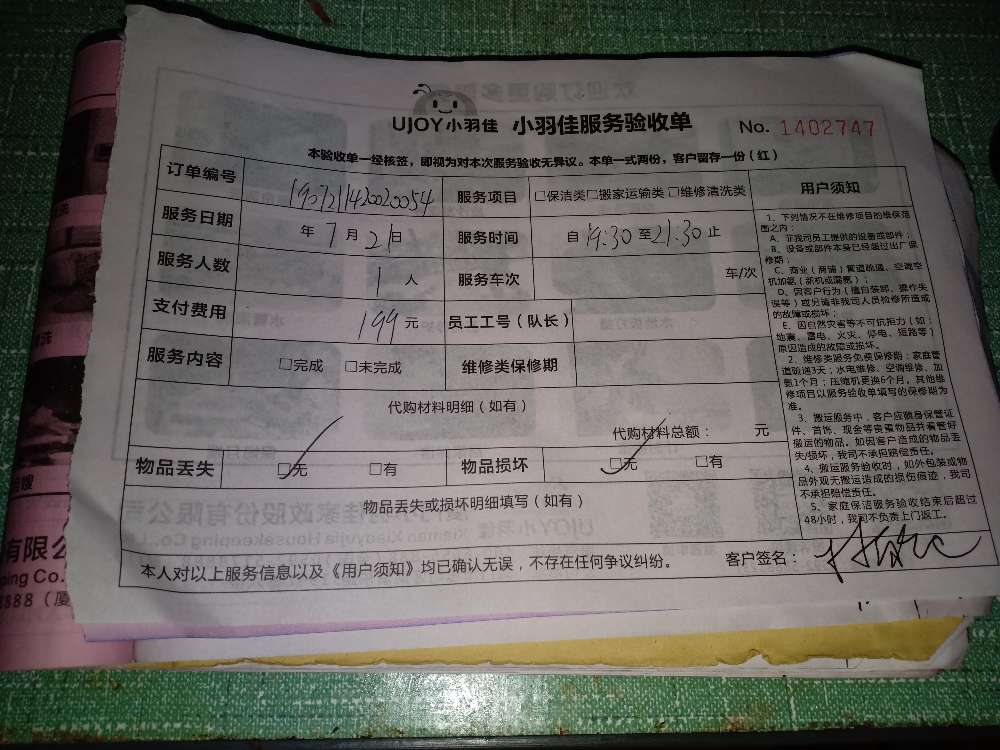 UJOY小羽佳 小羽佳服务验收单 No. 1402747
本验收单一经核签，即视为对本次服务验收无异议。本单一式两份，客户留存一份（红）
订单编号 1907211420020054 服务项目 □保洁类□搬家运输类□维修清洗类
服务日期 年7月21日 服务时间 自19:30至21:30止
服务人数 1人 服务车次 车/次
支付费用 199元 员工工号（队长）
服务内容 □完成 □未完成 维修类保修期
代购材料明细（如有）
代购材料总额： 元
物品丢失 □无 □有 物品损坏 □无 □有
物品丢失或损坏明细填写（如有）
本人对以上服务信息以及《用户须知》均已确认无误，不存在任何争议纠纷。 客户签名：
用户须知
1、下列情况不在维修项目的维保范
围之内：
A、非我司员工提供的设备或部件；
B、设备或部件本身已经超过出厂保
修期；
C、商业（商铺）管道疏通、空调空
机加氟（新机或漏氟）；
D、因客户行为（擅自装卸、操作失
误等）或另请非我司人员检修所造成
的故障或损坏；
E、因自然灾害等不可抗拒力（如：
地震、雷电、火灾、停电、短路等）
原因造成的故障或损坏。
2、维修类服务免费保修期：家庭管
道疏通3天；水电维修、空调维修、加
氟1个月；压缩机更换6个月，其他维
修项目以服务验收单填写的保修期为
准。
3、搬运服务中，客户应随身保管证
件、首饰、现金等贵重物品并看管好
搬运的物品。如因客户造成的物品丢
失/损坏，我司不承担赔偿责任。
4、搬运服务验收时，如外包装或物
品外观无搬运造成的损伤痕迹，我司
不承担赔偿责任。
5、家庭保洁服务验收结束后超过
48小时，我司不负责上门返工。
有限公
ping Co.
8888（厦